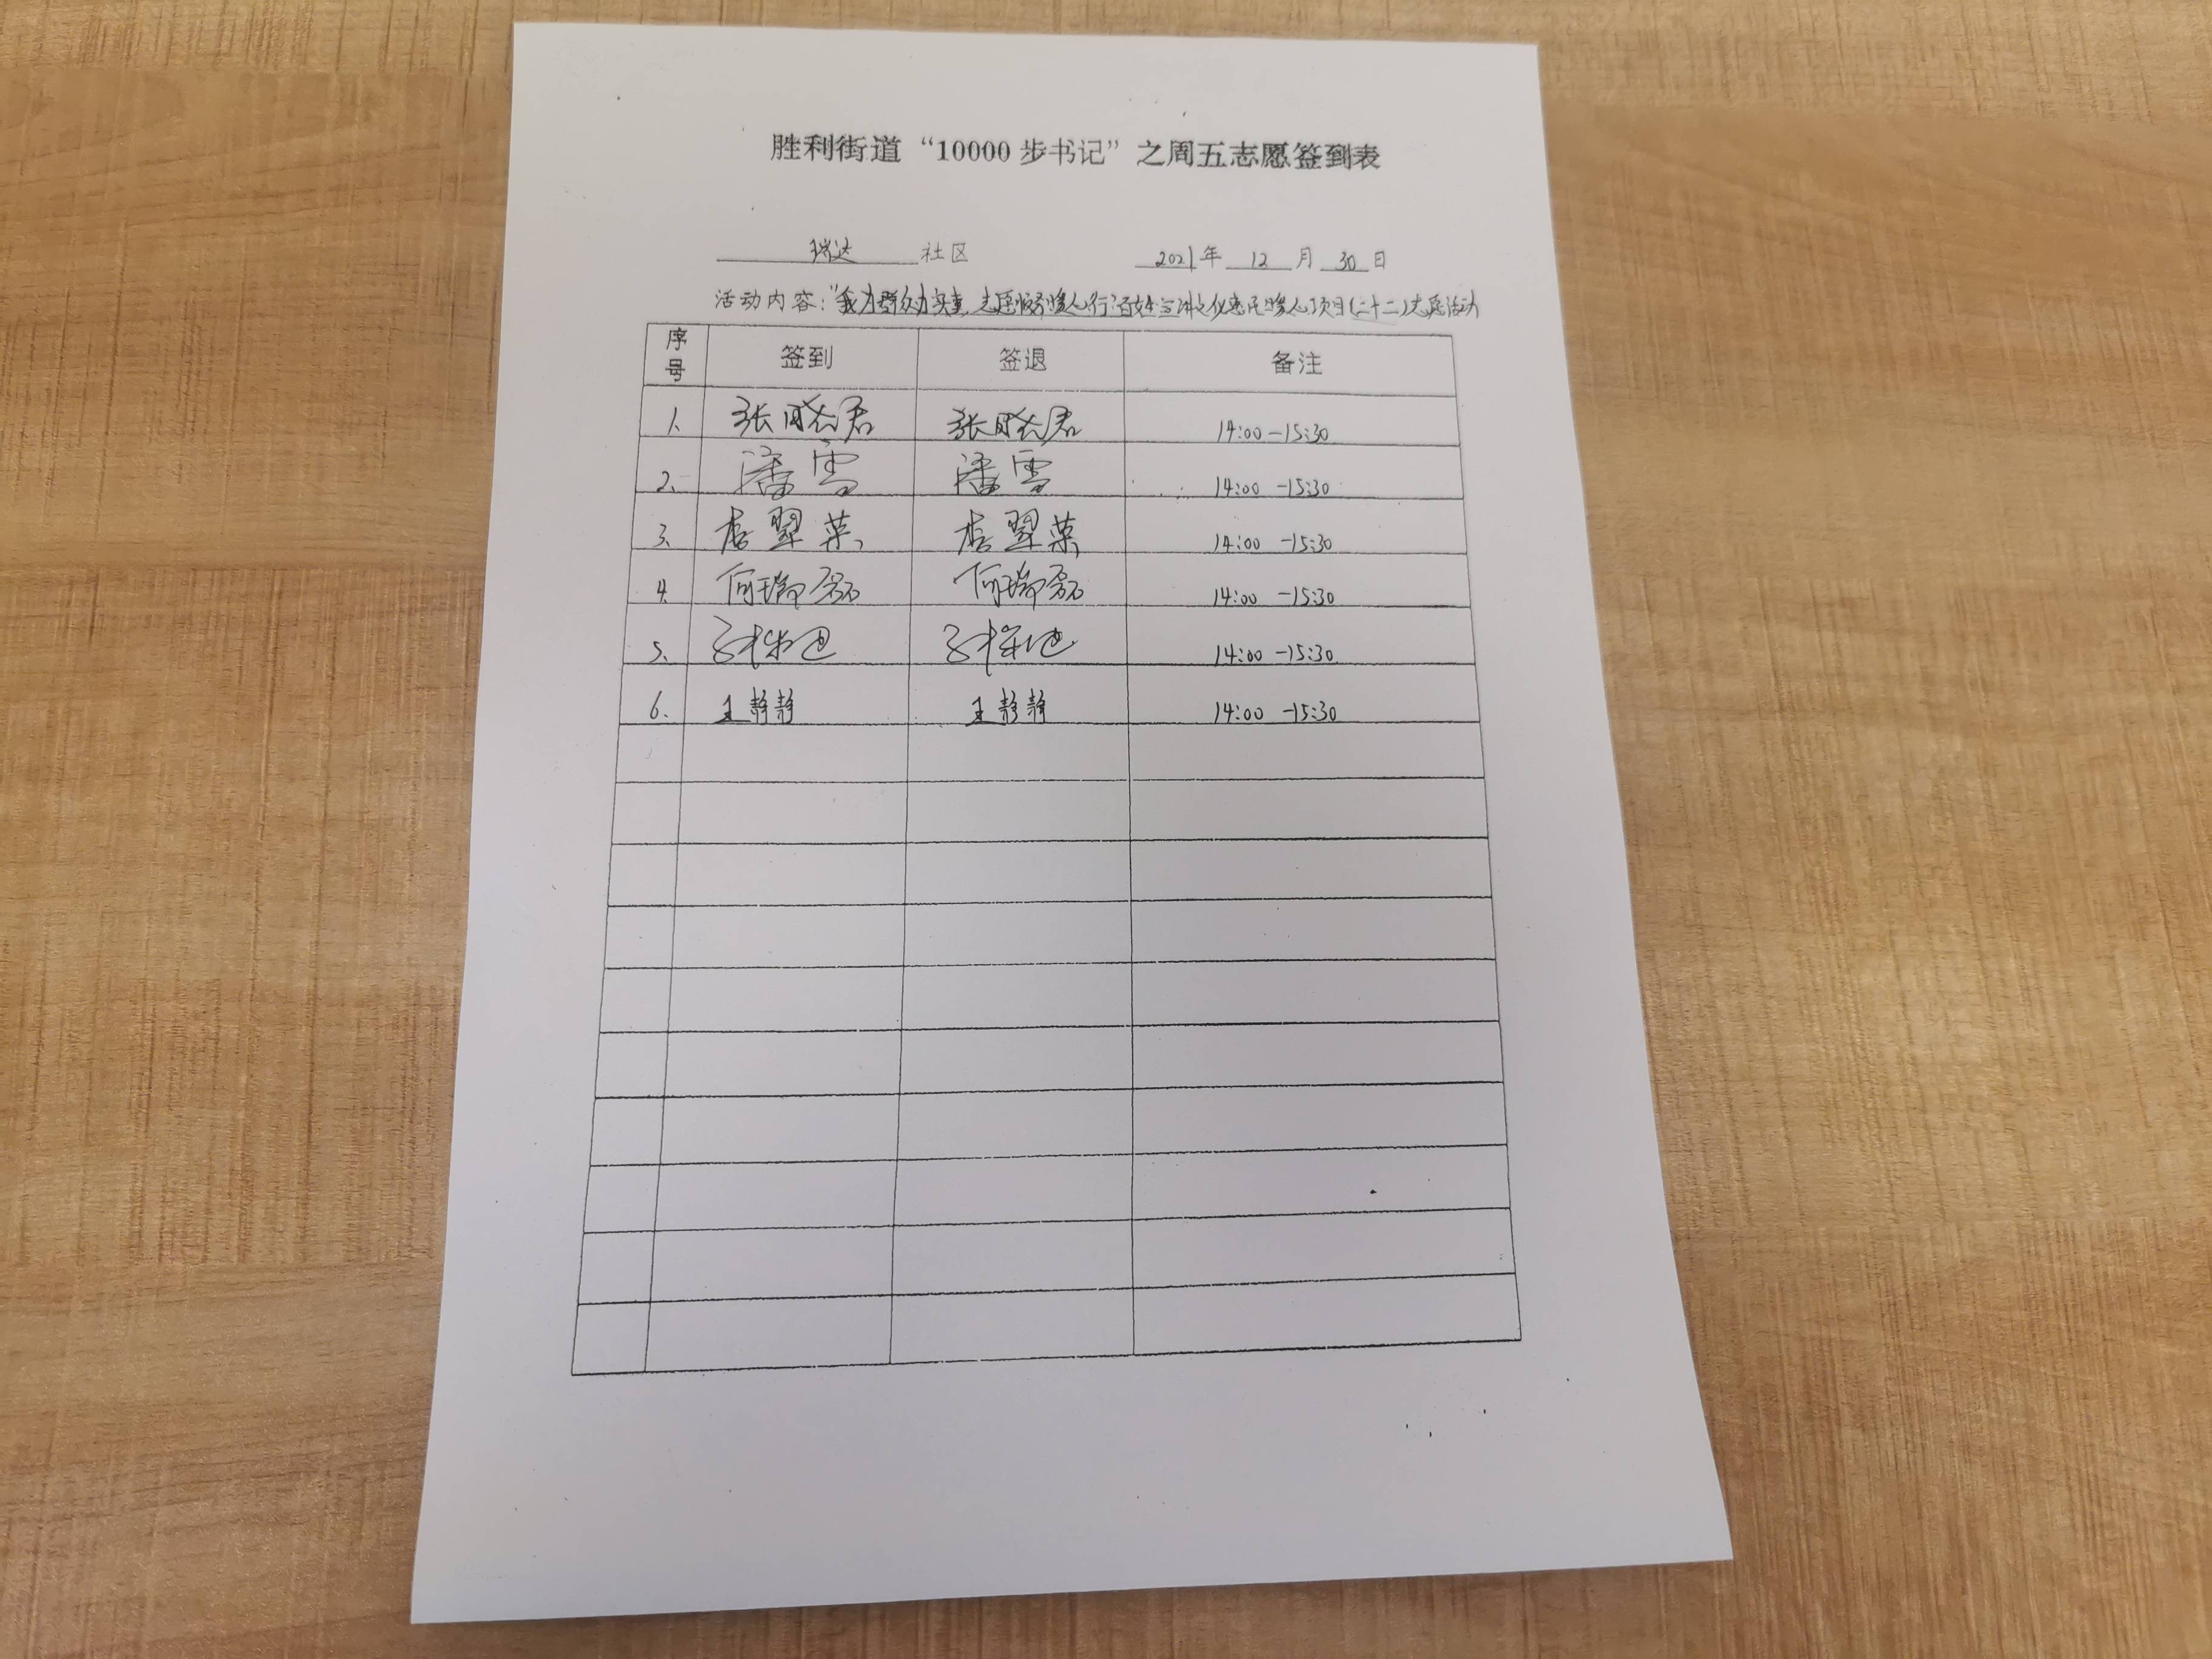 胜利街道“10000步书记”之周五志愿签到表
瑞达 社区 2021年 12 月 30 日
活动内容：“我为群众办实事，志愿服务暖人心行 项目(二十二)志愿活动
序号 签到 签退 备注
1. 张晓君 张晓君 14:00-15:30
2. 潘雪 潘雪 14:00-15:30
3. 翠菊 翠菊 14:00-15:30
4. 何瑞磊 何瑞磊 14:00-15:30
5. 14:00-15:30
6. 王静静 王静静 14:00-15:30